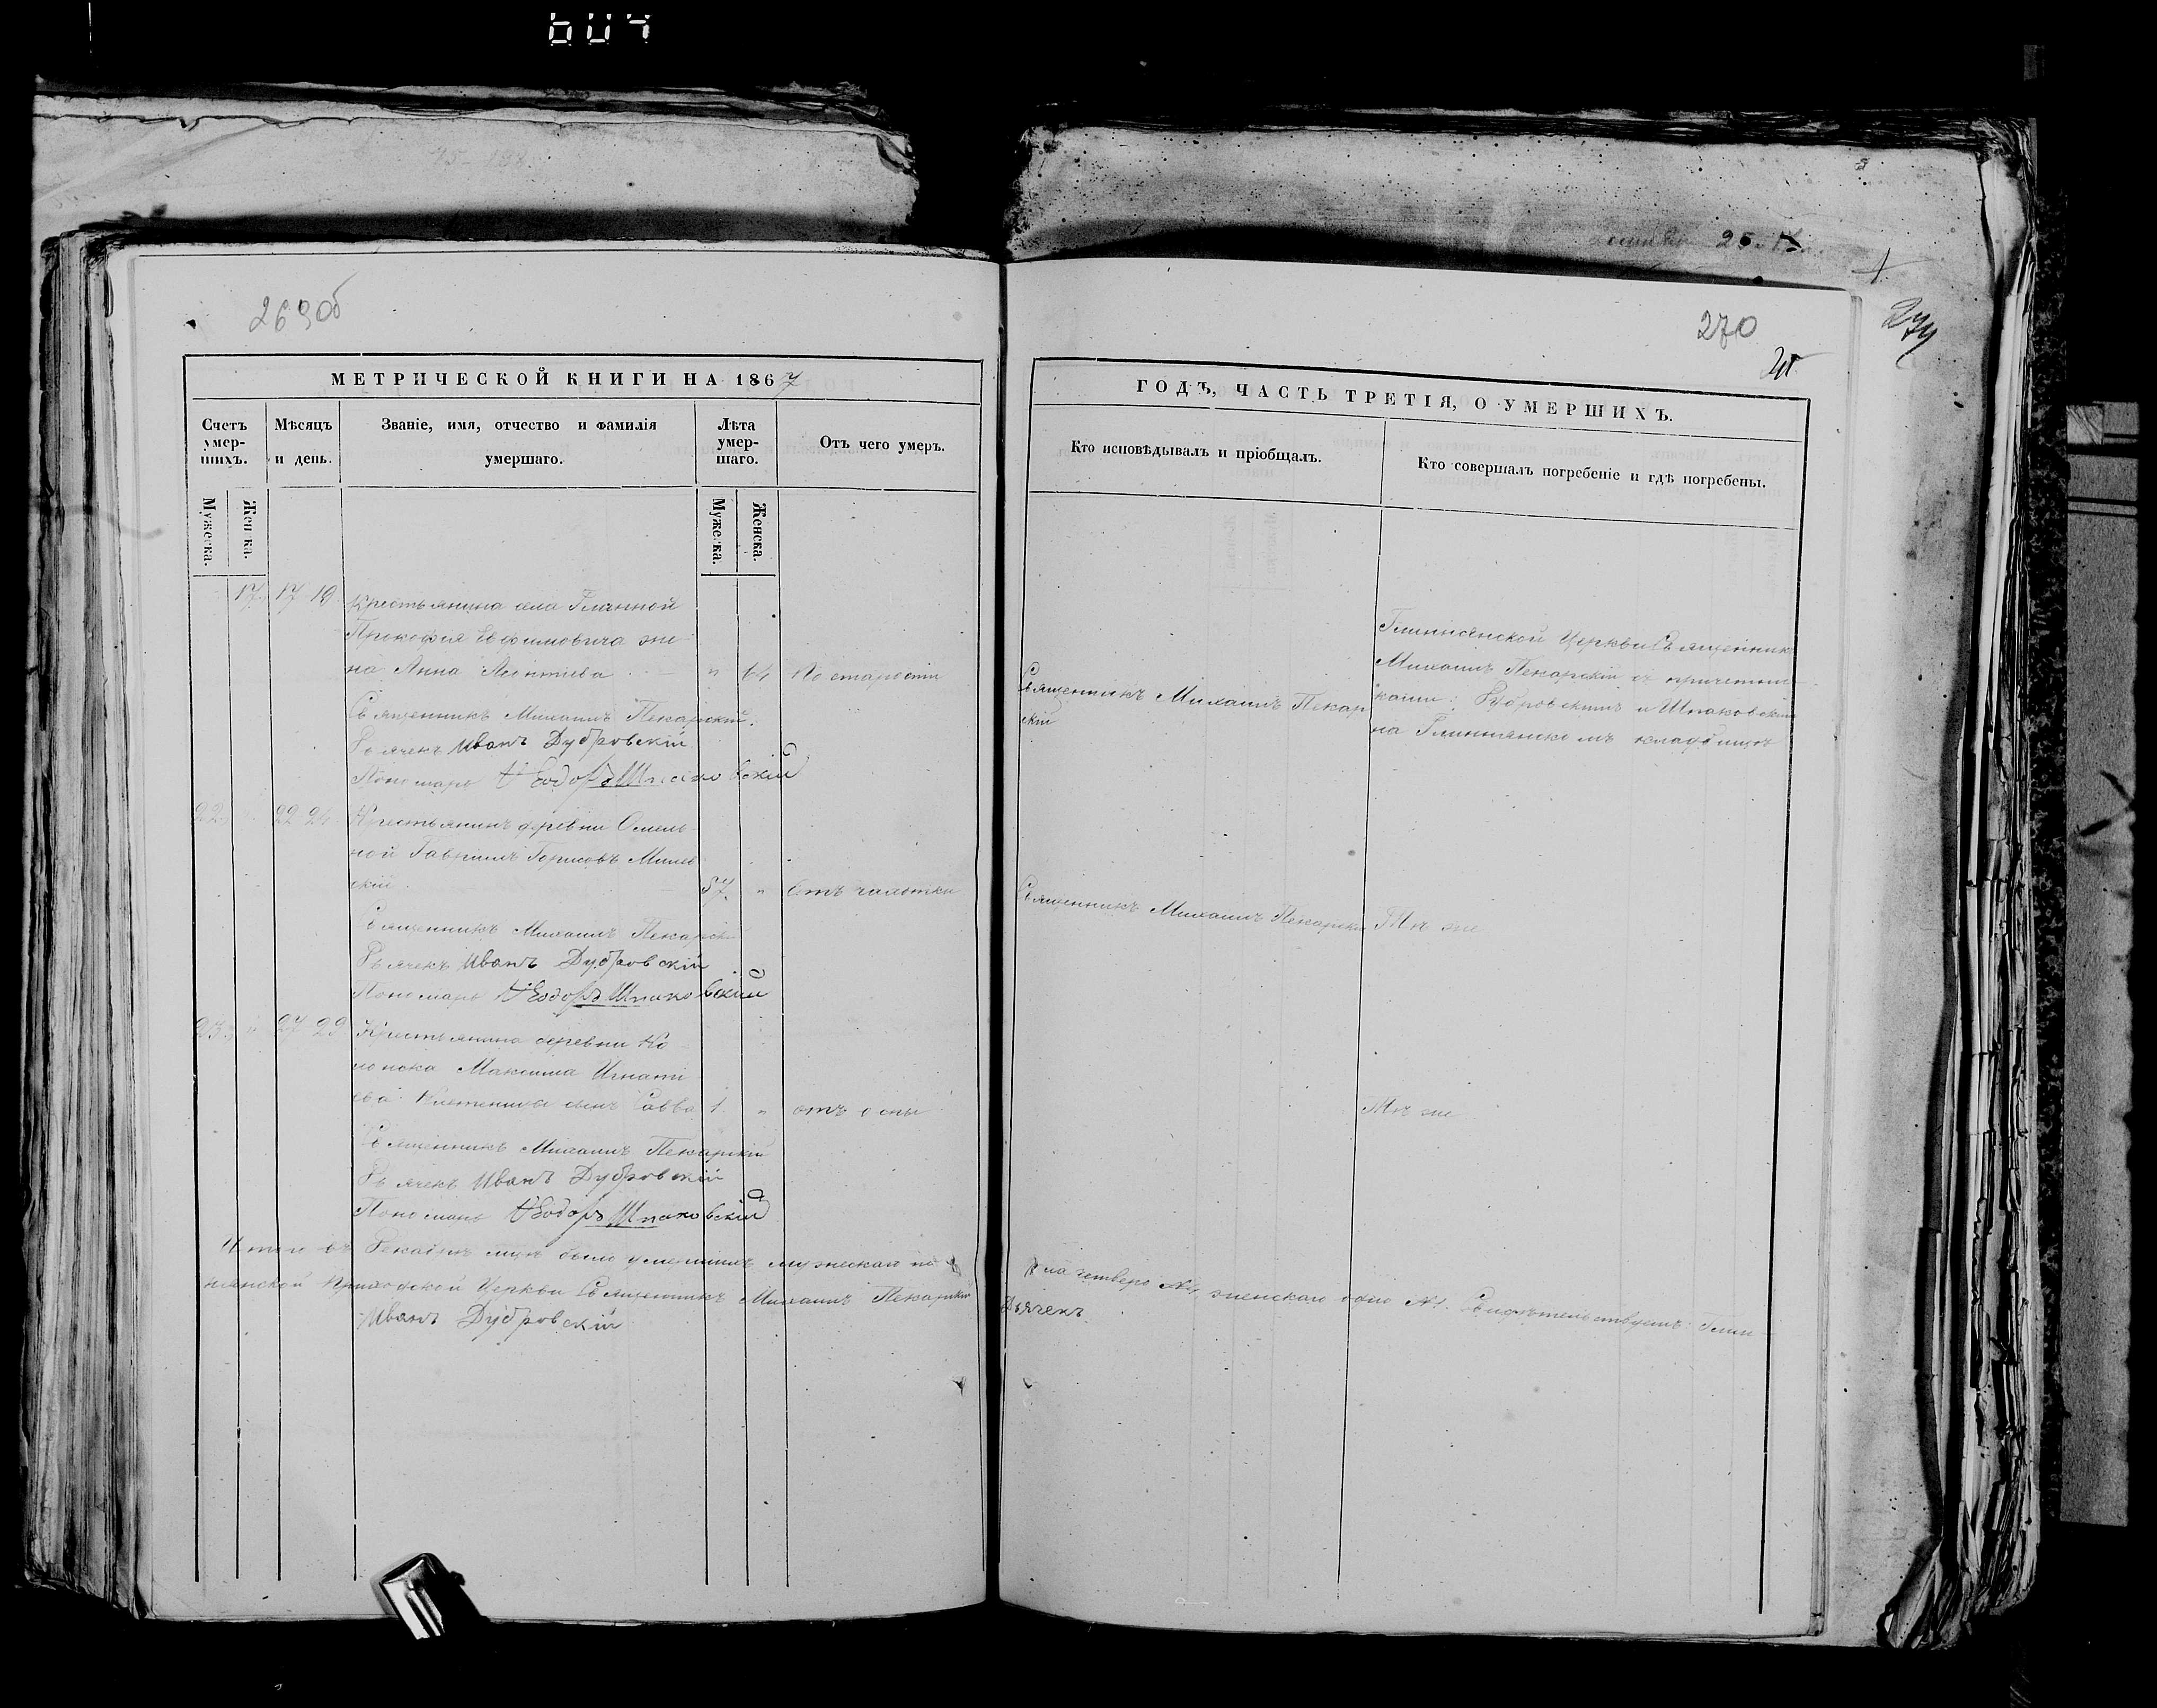 604
269об
МЕТРИЧЕСКОЙ КНИГИ НА 1867
Счетъ умер-шихъ.
Мѣсяцъ и день.
Званіе, имя, отчество и фамилія умершаго.
Лѣта умер-шаго.
Отъ чего умеръ.
Мужеска.
Женска.
Мужеска.
Женска.
17 17 19 Крестьянина села Глинной
Прокофія Ефимовича же-
на Анна Леонтіева " 64 По старости
Священникъ Михаилъ Пекарскій.
Дьячекъ Иванъ Дубровскій
Пономарь Ѳеодоръ Шпаковскій
22 " 22 24 Крестьянинъ деревни Омель-
ной Гавріилъ Борисовъ Милев
скій 57 " Отъ чахотки
Священникъ Михаилъ Пекарскій
Дьячекъ Иванъ Дубровскій
Пономарь Ѳеодоръ Шпаковскій
23 " 27 29 Крестьянина деревни Ко-
Максима Игнати
ева сынъ Савва 1 " отъ оспы
Священникъ Михаилъ Пекарскій
Дьячекъ Иванъ Дубровскій
Пономарь Ѳеодоръ Шпаковскій
Итого въ Декабрѣ было умершихъ мужескаго по
нянской Приходской Церкви Священникъ Михаилъ Пекарскій
Иванъ Дубровскій
25
270
ГОДЪ, ЧАСТЬ ТРЕТІЯ, О УМЕРШИХЪ.
Кто исповѣдывалъ и пріобщалъ.
Кто совершалъ погребеніе и гдѣ погребены.
Священникъ Михаилъ Пекар
скій
Глиннянской Церкви Священник
Михаилъ Пекарскій съ причетни-
ками: Дубровскимъ и Шпаковским
на Глиннянскомъ кладбищѣ
Священникъ Михаилъ Пекарскій Тѣ же
Тѣ же
ла четверо №4, женскаго одно №1. Свидѣтельствуемъ: Глин-
Дьячекъ